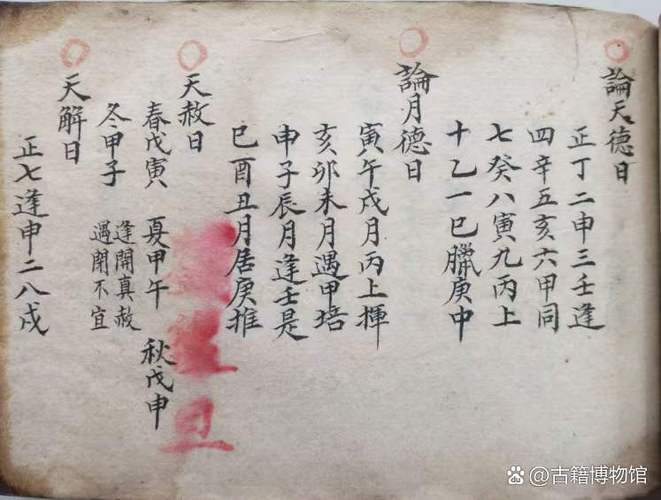 論天德日
正丁二申三壬逢
四辛五亥六甲同
七癸八寅九丙上
十乙一巳臘庚中
論月德日
寅午戌月丙上揮
亥卯未月遇甲培
申子辰月逢壬是
巳酉丑月居庚推
天赦日
春戊寅 夏甲午 秋戊申
冬甲子 逢開真赦
遇閉不宜
天解日
正七逢申二八戌
古籍博物馆